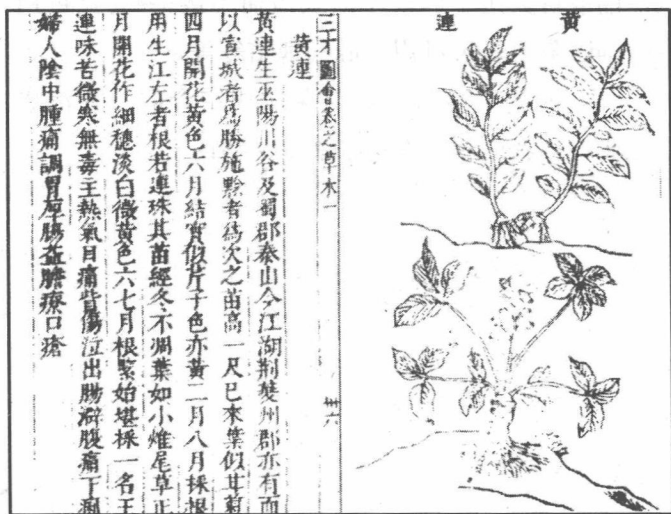 黃連
三才圖會卷之草木一 卅六
黃連
黃連生巫陽川谷及蜀郡泰山今江湖荊夔州郡亦有而
以宣城者爲勝施黔者爲次之苗高一尺已來葉似甘菊
四月開花黃色六月結實似芹子色亦黃二月八月採根
用生江左者根若連珠其苗經冬不凋葉如小雉尾草正
月開花作細穗淡白微黃色六七月根緊始堪採一名王
連味苦微寒無毒主熱氣目痛眥傷泣出腸澼腹痛下痢
婦人陰中腫痛調胃厚腸益膽療口瘡